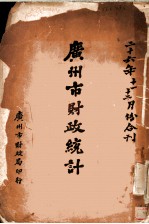 二十六年十一十二月份合刊
廣州市財政統計
廣州市財政局印行